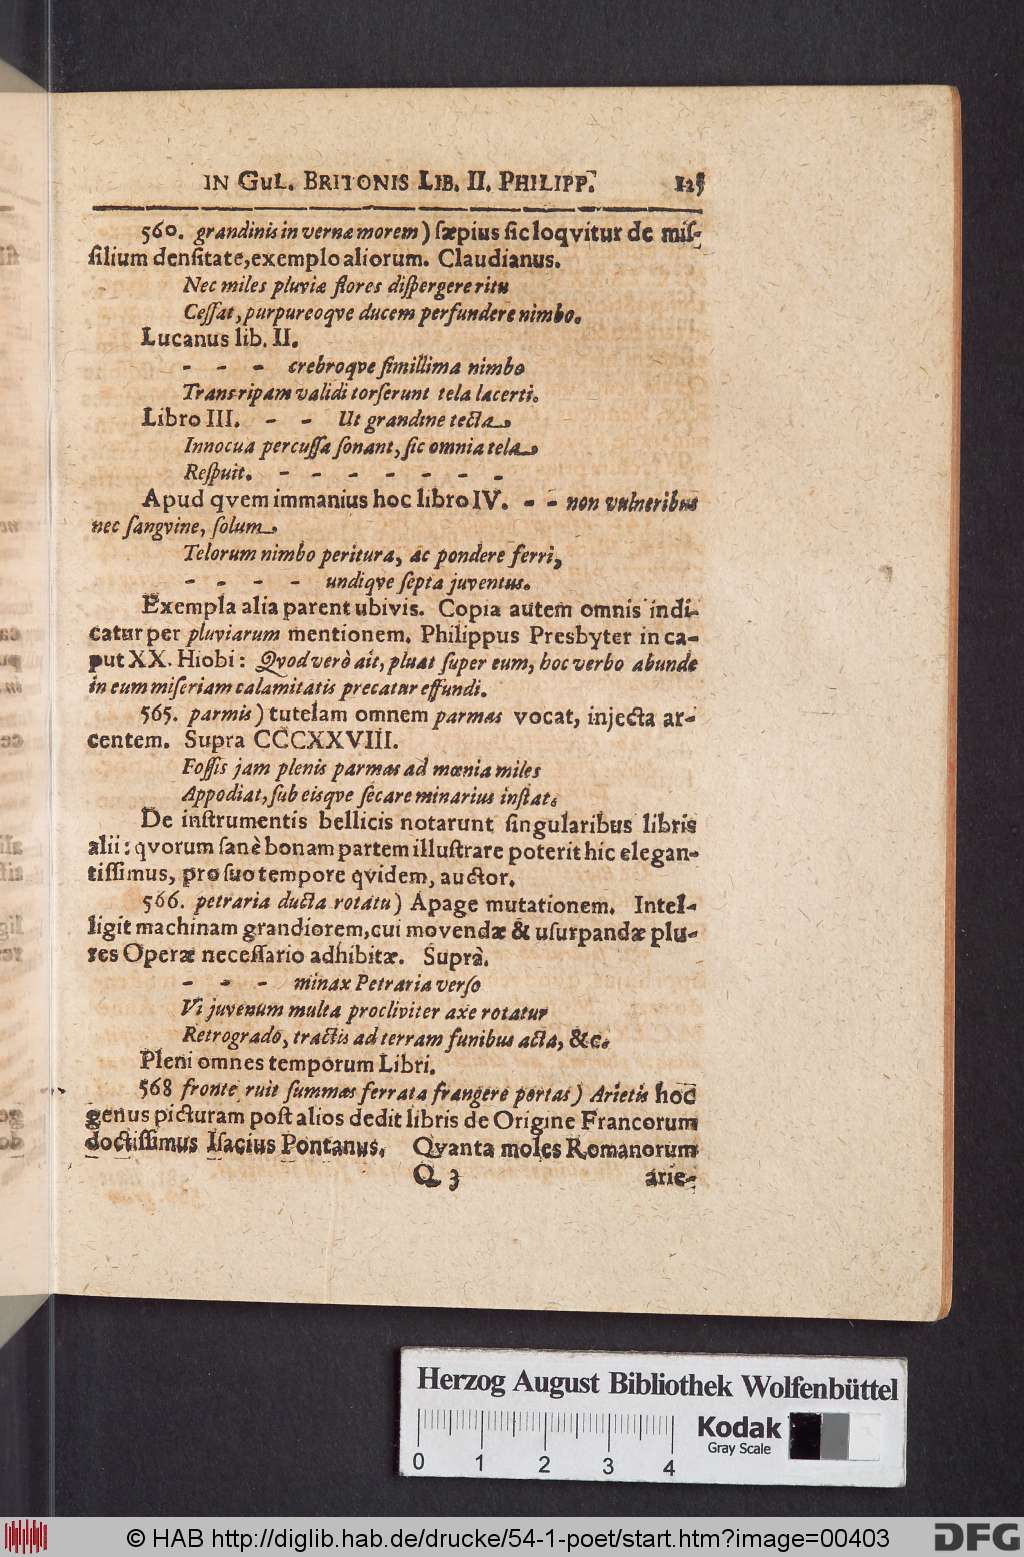 IN GUL. BRITONIS LIB. II. PHILIPP. 125
560. grandinis in vernæ morem) ſæpius ſic loqvitur de miſ-
ſilium denſitate, exemplo aliorum. Claudianus.
Nec miles pluviæ flores diſpergere ritu
Ceſſat, purpureoqve ducem perfundere nimbo.
Lucanus lib. II.
- - - crebroqve ſimillima nimbo
Trans ripam validi torſerunt tela lacerti.
Libro III. - - Ut grandine tecta
Innocua percuſſa ſonant, ſic omnia tela
Reſpuit. - - - - - - -
Apud qvem immanius hoc libro IV. - - non vulneribus
nec ſangvine, ſolum
Telorum nimbo peritura, ac pondere ferri,
- - - - undiqve ſepta juventus.
Exempla alia parent ubivis. Copia autem omnis indi-
catur per pluviarum mentionem. Philippus Presbyter in ca-
put XX. Hiobi: Qvod verò ait, pluat ſuper eum, hoc verbo abunde
in eum miſeriam calamitatis precatur effundi.
565. parmis) tutelam omnem parmas vocat, injecta ar-
centem. Supra CCCXXVIII.
Foſſis jam plenis parmas ad mœnia miles
Appodiat, ſub eisqve ſecare minarius inſtat.
De inſtrumentis bellicis notarunt ſingularibus libris
alii: qvorum ſanè bonam partem illuſtrare poterit hic elegan-
tiſſimus, pro ſuo tempore qvidem, auctor.
566. petraria ducta rotatu) Apage mutationem. Intel-
ligit machinam grandiorem, cui movendæ & uſurpandæ plu-
res Operæ neceſſario adhibitæ. Suprà.
- - - minax Petraria verſo
Vi juvenum multa procliviter axe rotatur
Retrogrado, tractis ad terram funibus acta, &c.
Pleni omnes temporum Libri.
568 fronte ruit ſummas ferrata frangere portas) Arietis hoc
genus picturam poſt alios dedit libris de Origine Francorum
doctiſſimus Iſacius Pontanus. Qvanta moles Romanorum
Q 3 arie-
Herzog August Bibliothek Wolfenbüttel
Kodak
Gray Scale
0 1 2 3 4
© HAB http://diglib.hab.de/drucke/54-1-poet/start.htm?image=00403
DFG